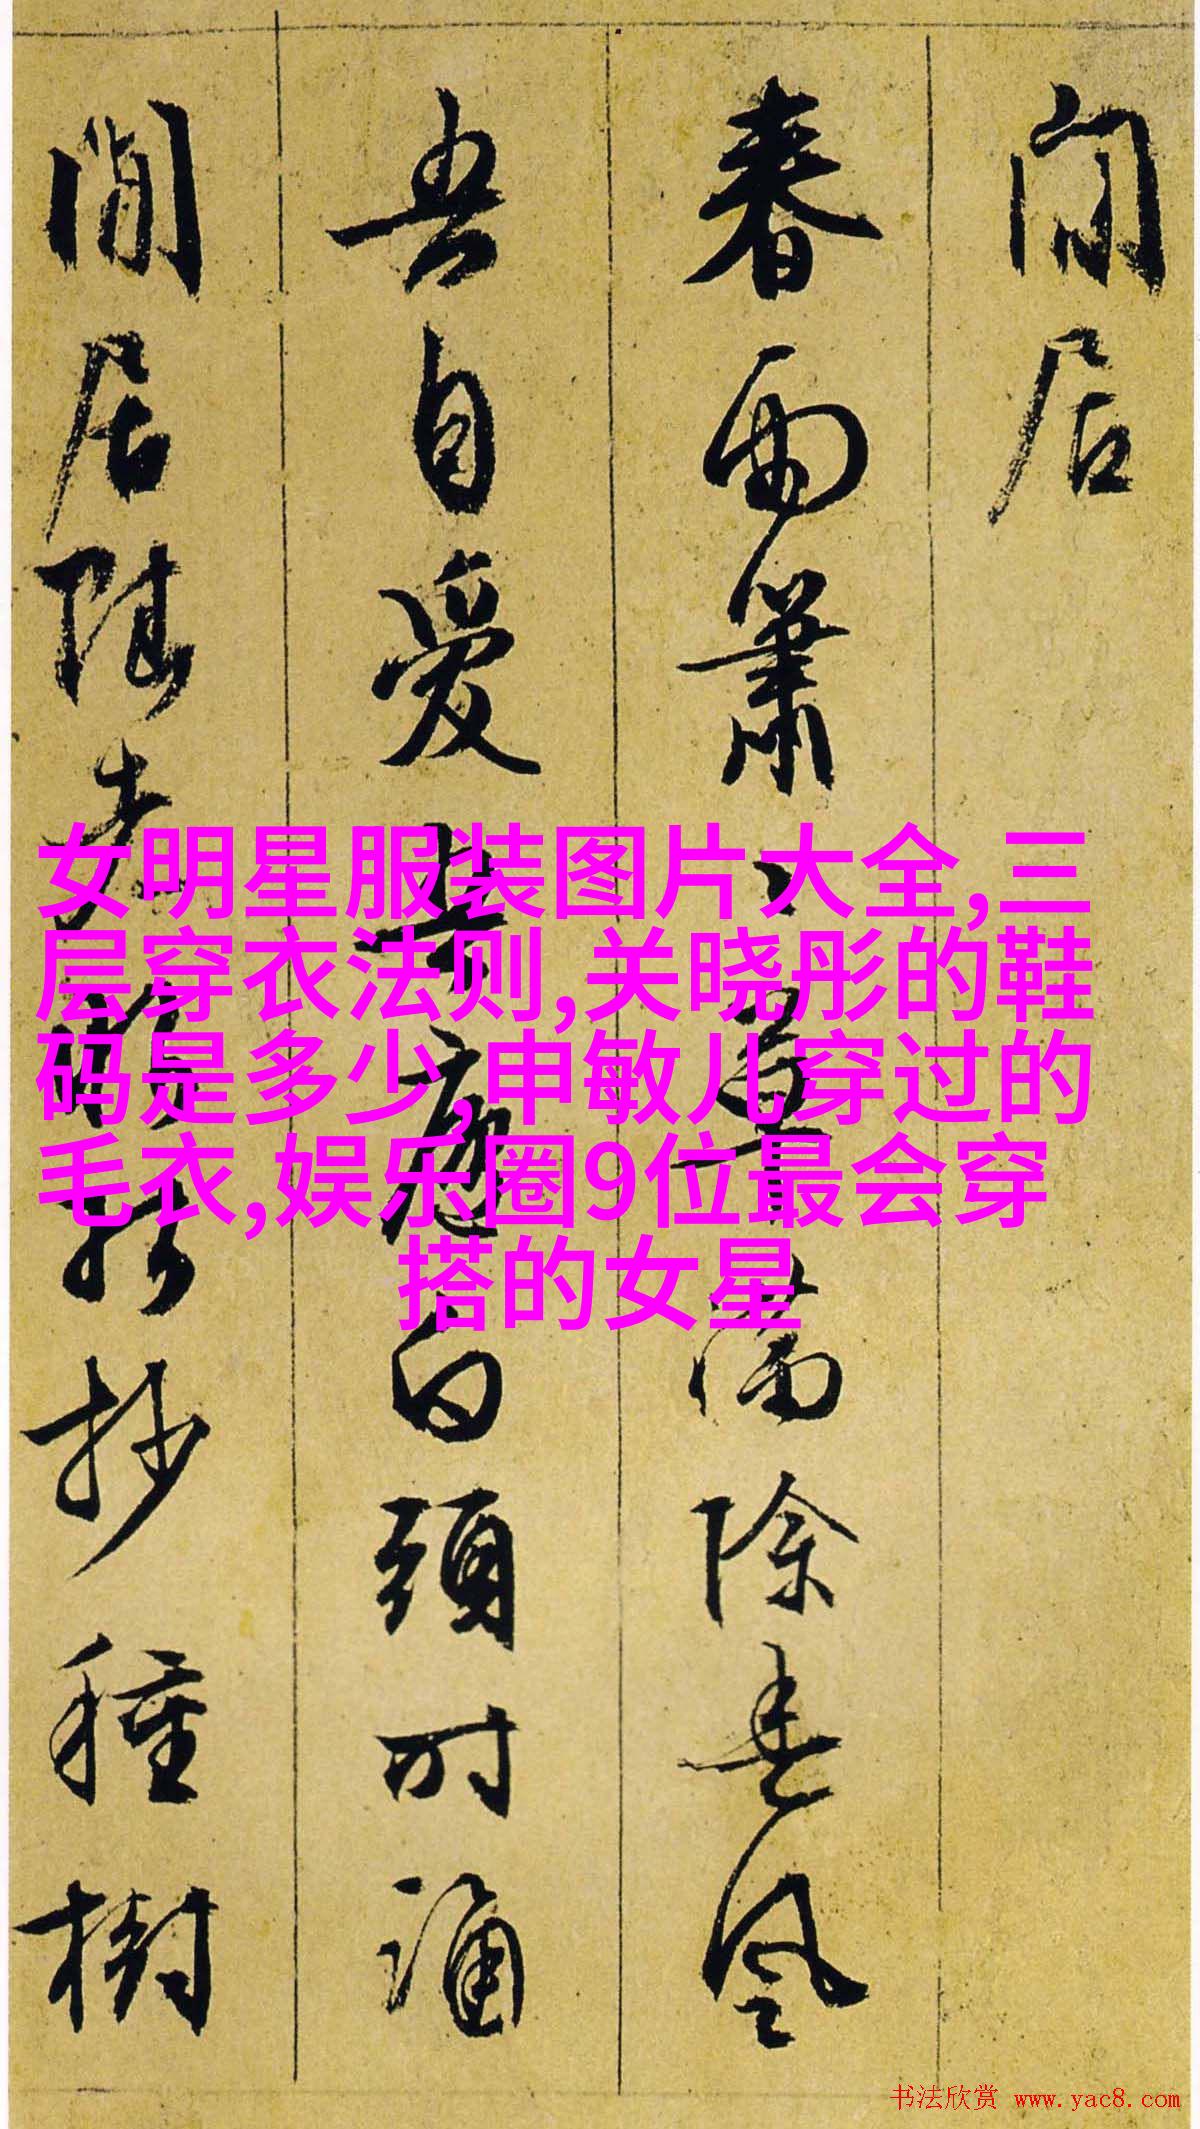 閒居
春雨蕭〻草滿除春風
吾自愛其廬白頭時誦
閒居賦老眼抄種樹
女明星服装图片大全,三
层穿衣法则,关晓彤的鞋
码是多少,申敏儿穿过的
毛衣,娱乐圈9位最会穿
搭的女星
书法欣赏 www.yac8.com